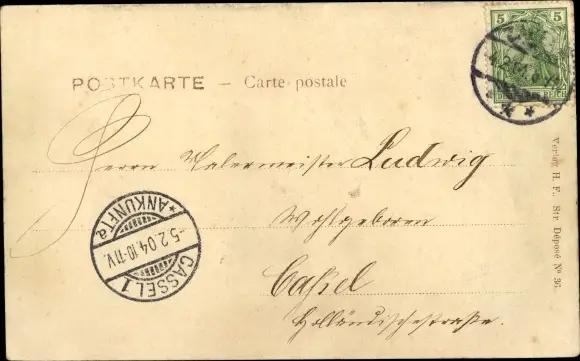 5 5
POSTKARTE – Carte postale
Herrn Malermeister Ludwig
Wohlgeboren
Cassel
Holländischestraße.
CASSEL 1
-5.2.04.10-11V.
*ANKUNFT a
Verlag H. F., Str. Déposé Nº 36.
REICH